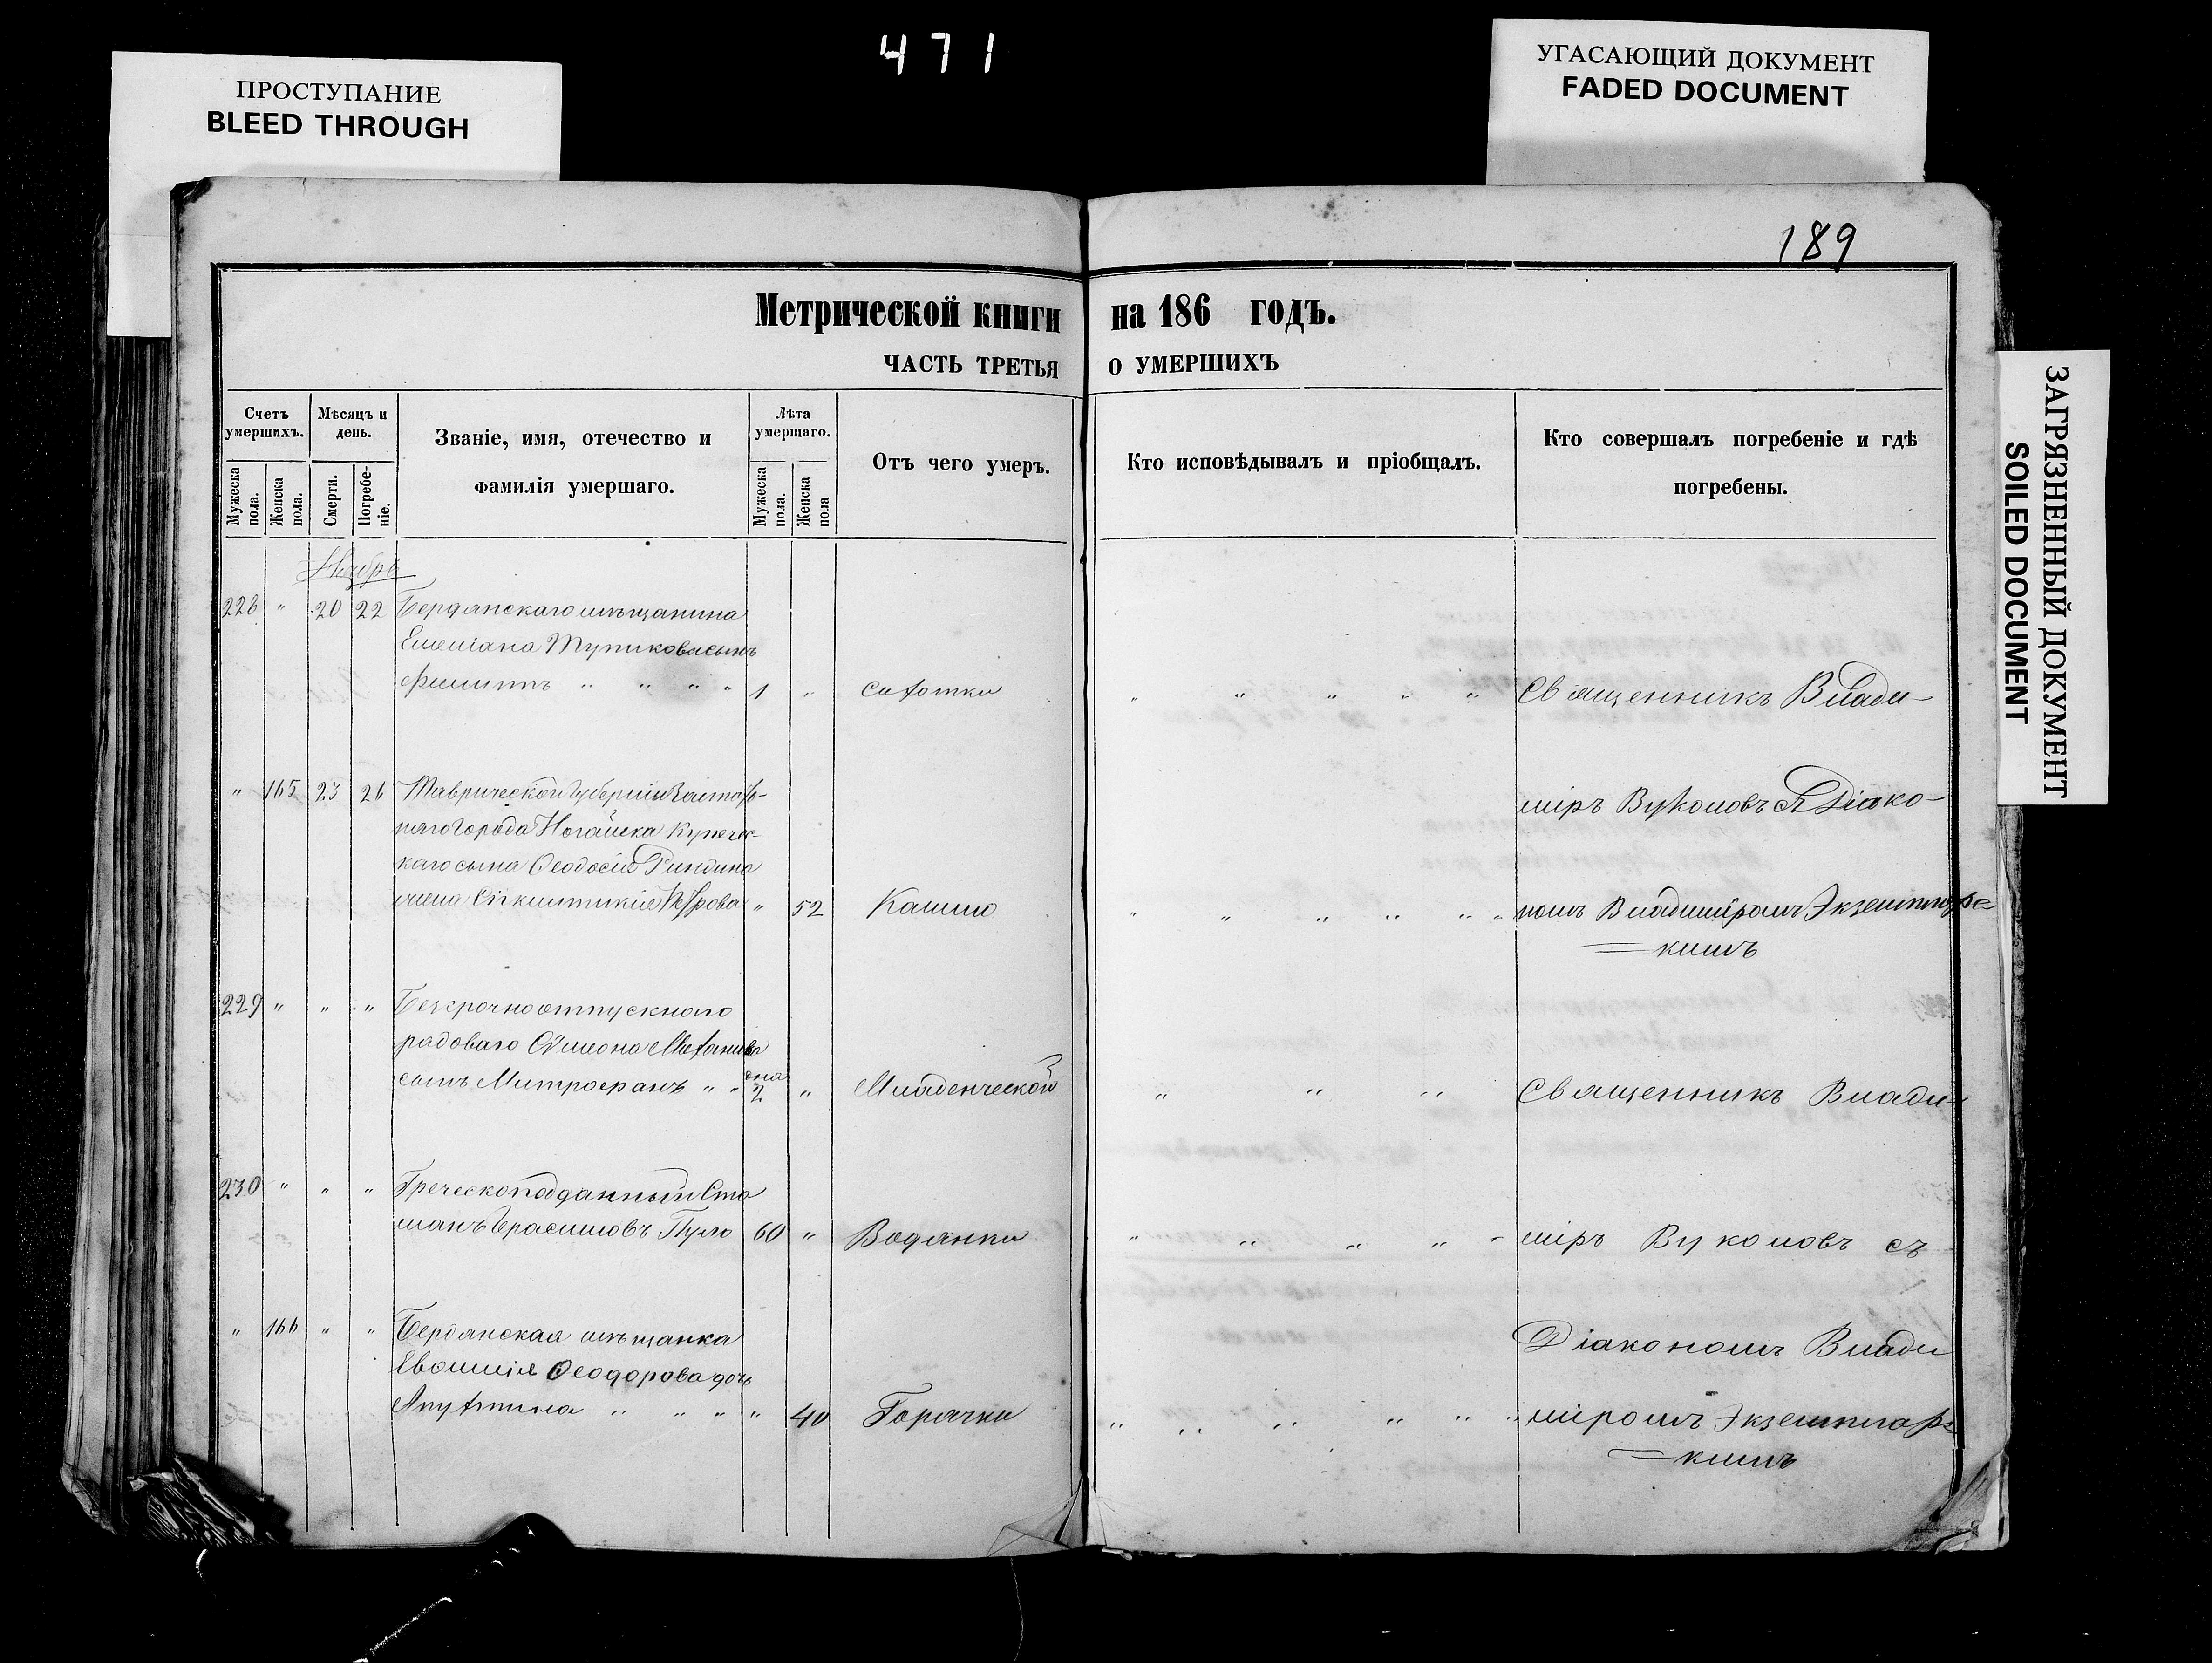 471
ПРОСТУПАНИЕ
BLEED THROUGH
УГАСАЮЩИЙ ДОКУМЕНТ
FADED DOCUMENT
ЗАГРЯЗНЕННЫЙ ДОКУМЕНТ
SOILED DOCUMENT
189
Метрической книги на 186 годъ.
ЧАСТЬ ТРЕТЬЯ О УМЕРШИХЪ
Счетъ умершихъ.
Мужеска пола.
Женска пола.
Мѣсяцъ и день.
Смерти.
Погребе-ніе.
Званіе, имя, отечество и
фамилія умершаго.
Лѣта умершаго.
Мужеска пола.
Женска пола
Отъ чего умеръ.
Кто исповѣдывалъ и пріобщалъ.
Кто совершалъ погребеніе и гдѣ
погребены.
228 " 20 22 Бердянскаго мѣщанина
Емеліана Тупикова сынъ
Филиппъ " " " " 1 " Сухотки " " " " " Священникъ Влади-
" 165 23 26 Таврической Губерніи Заштат-
наго Города Ногайска Купечес-
каго сына Ѳеодосія
жена Петрова " 52 Кашлю " " " " " " номъ Владиміромъ Экземпляр-
міръ Вуколовъ съ Діако-
кимъ
229 " " " Безсрочноотпускнаго
рядоваго Сѵмеона
сынъ Митрофанъ " " 2 " Младенческой " " " Священникъ Влади-
230 " " " Греческоподданный Ста
Герасимовъ 60 " Водянки " " " " " міръ Вуколовъ съ
" 166 " " Бердянская мѣщанка
Евѳимія Ѳеодорова дочь
Діакономъ Влади
" " " " 40 Горячки " " " " " " міромъ Экземпляр-
кимъ